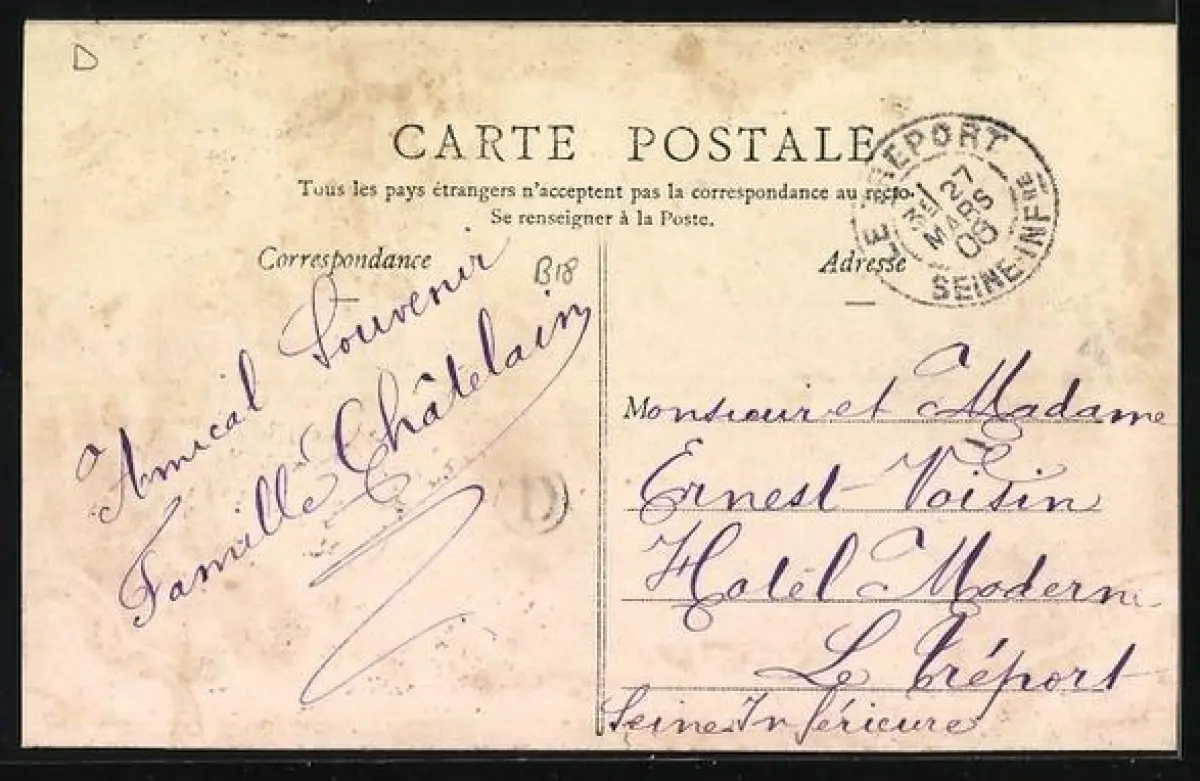 D
CARTE POSTALE
Tous les pays étrangers n'acceptent pas la correspondance au recto.
Se renseigner à la Poste.
LE TREPORT
27
MARS
08
SEINE-INFRE
Correspondance
B18
Adresse
Amical Souvenir
Famille Châtelain
D
Monsieur et Madame
Ernest Voisin
Hotel Moderne
Le Tréport
Seine Inférieure